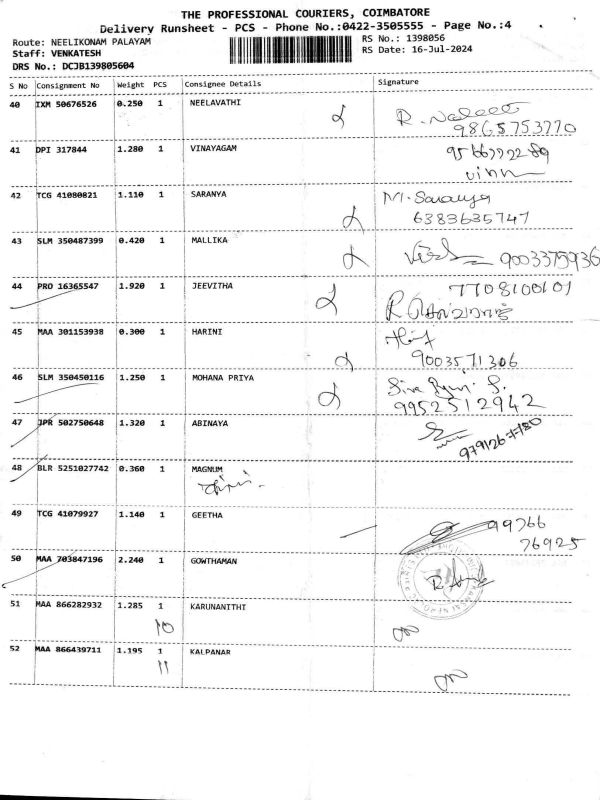 THE PROFESSIONAL COURIERS, COIMBATORE
Delivery Runsheet - PCS - Phone No.:0422-3505555 - Page No.:4
Route: NEELIKONAM PALAYAM RS No.: 1398056
Staff: VENKATESH RS Date: 16-Jul-2024
DRS No.: DCJB139805604
S No Consignment No Weight PCS Consignee Details Signature
40 IXM 50676526 0.250 1 NEELAVATHI R.
9865753770
41 DPI 317844 1.280 1 VINAYAGAM
42 TCG 41080821 1.110 1 SARANYA M. Saranya
6383635747
43 SLM 350487399 0.420 1 MALLIKA 9003375936
44 PRO 16365547 1.920 1 JEEVITHA 7708100101
R
45 MAA 301153938 0.300 1 HARINI
9003571306
46 SLM 350450116 1.250 1 MOHANA PRIYA Siva S.
9952512942
47 JPR 502750648 1.320 1 ABINAYA
48 BLR 5251027742 0.360 1 MAGNUM
49 TCG 41079927 1.140 1 GEETHA 99766
76925
50 MAA 703847196 2.240 1 GOWTHAMAN
51 MAA 866282932 1.285 1 KARUNANITHI
10
52 MAA 866439711 1.195 1 KALPANAR
11